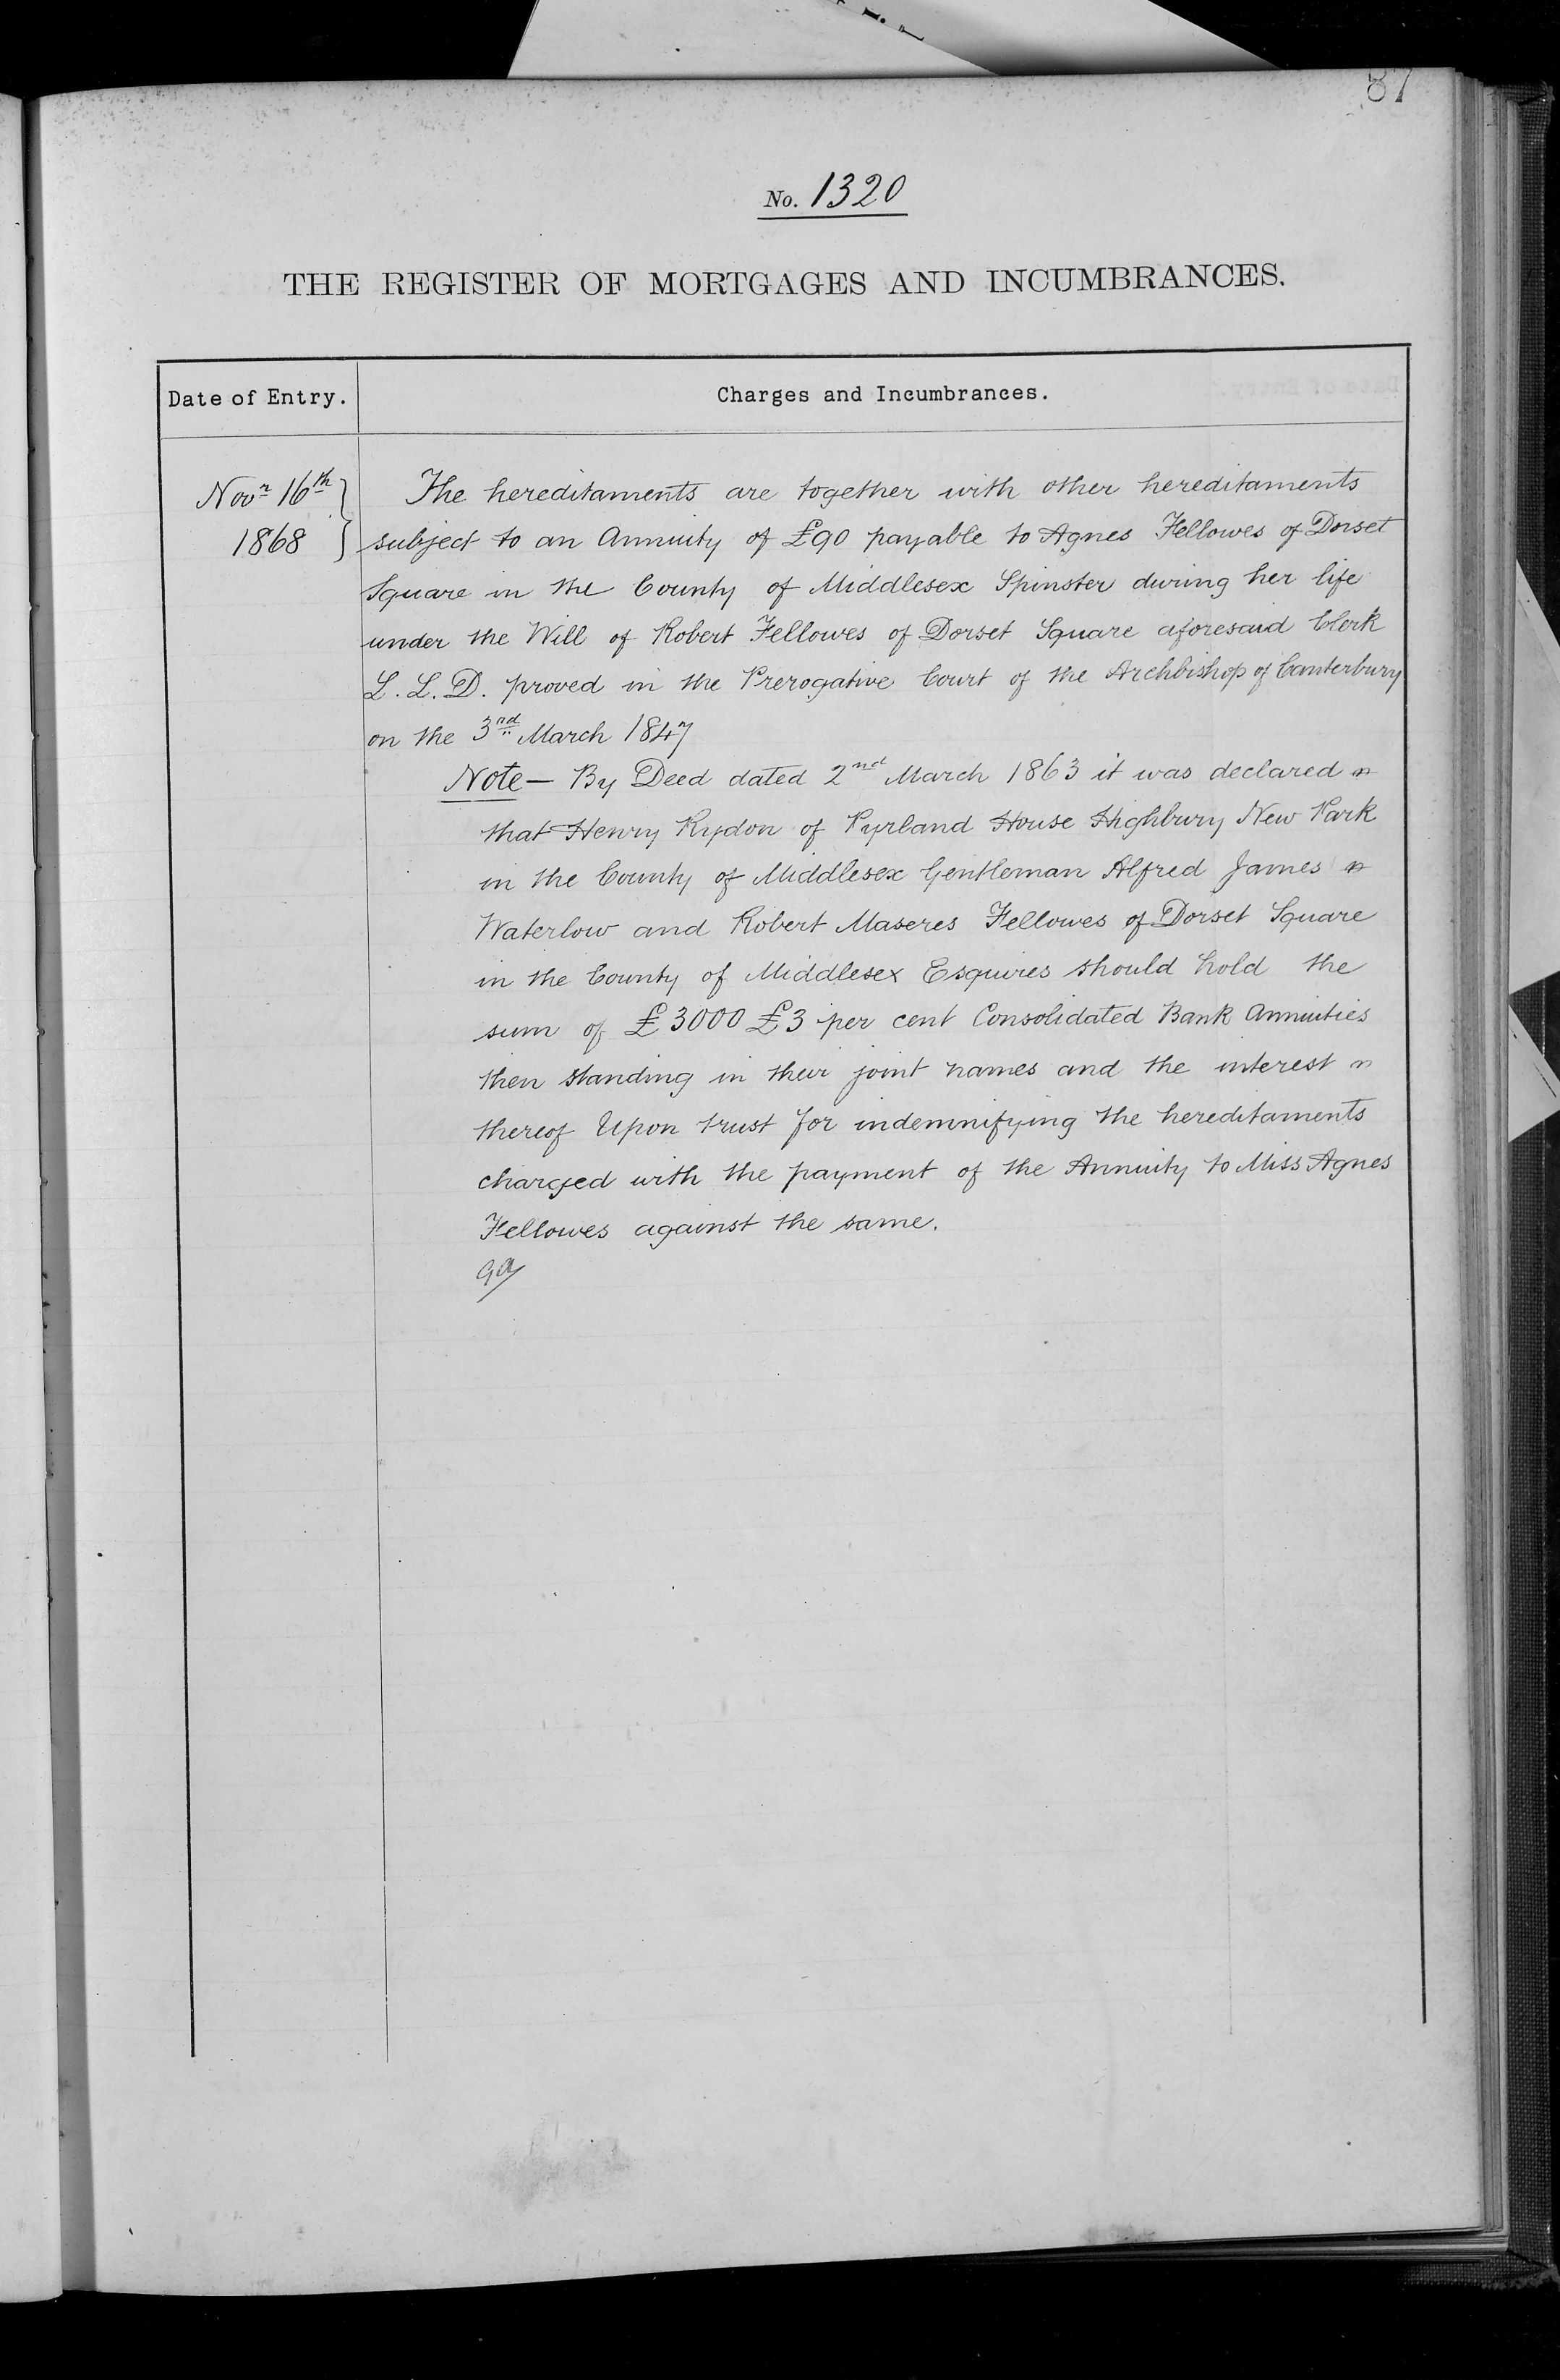 87
No. 1320
THE REGISTER OF MORTGAGES AND INCUMBRANCES.
Date of Entry.
Charges and Incumbrances.
Novr 16th
1868
The hereditaments are together with other hereditaments
subject to an Annuity of £90 payable to Agnes Fellowes of Dorset
Square in the County of Middlesex Spinster during her life
under the Will of Robert Fellowes of Dorset Square aforesaid Clerk
L. L. D. proved in the Prerogative Court of the Archbishop of Canterbury
on the 3rd March 1847
Note — By Deed dated 2nd March 1863 it was declared
that Henry Rydon of Pyrland House Highbury New Park
in the County of Middlesex Gentleman Alfred James
Waterlow and Robert Maseres Fellowes of Dorset Square
in the County of Middlesex Esquires should hold the
sum of £3000 £3 per cent Consolidated Bank Annuities
then standing in their joint names and the interest
thereof Upon trust for indemnifying the hereditaments
charged with the payment of the Annuity to Miss Agnes
Fellowes against the same.